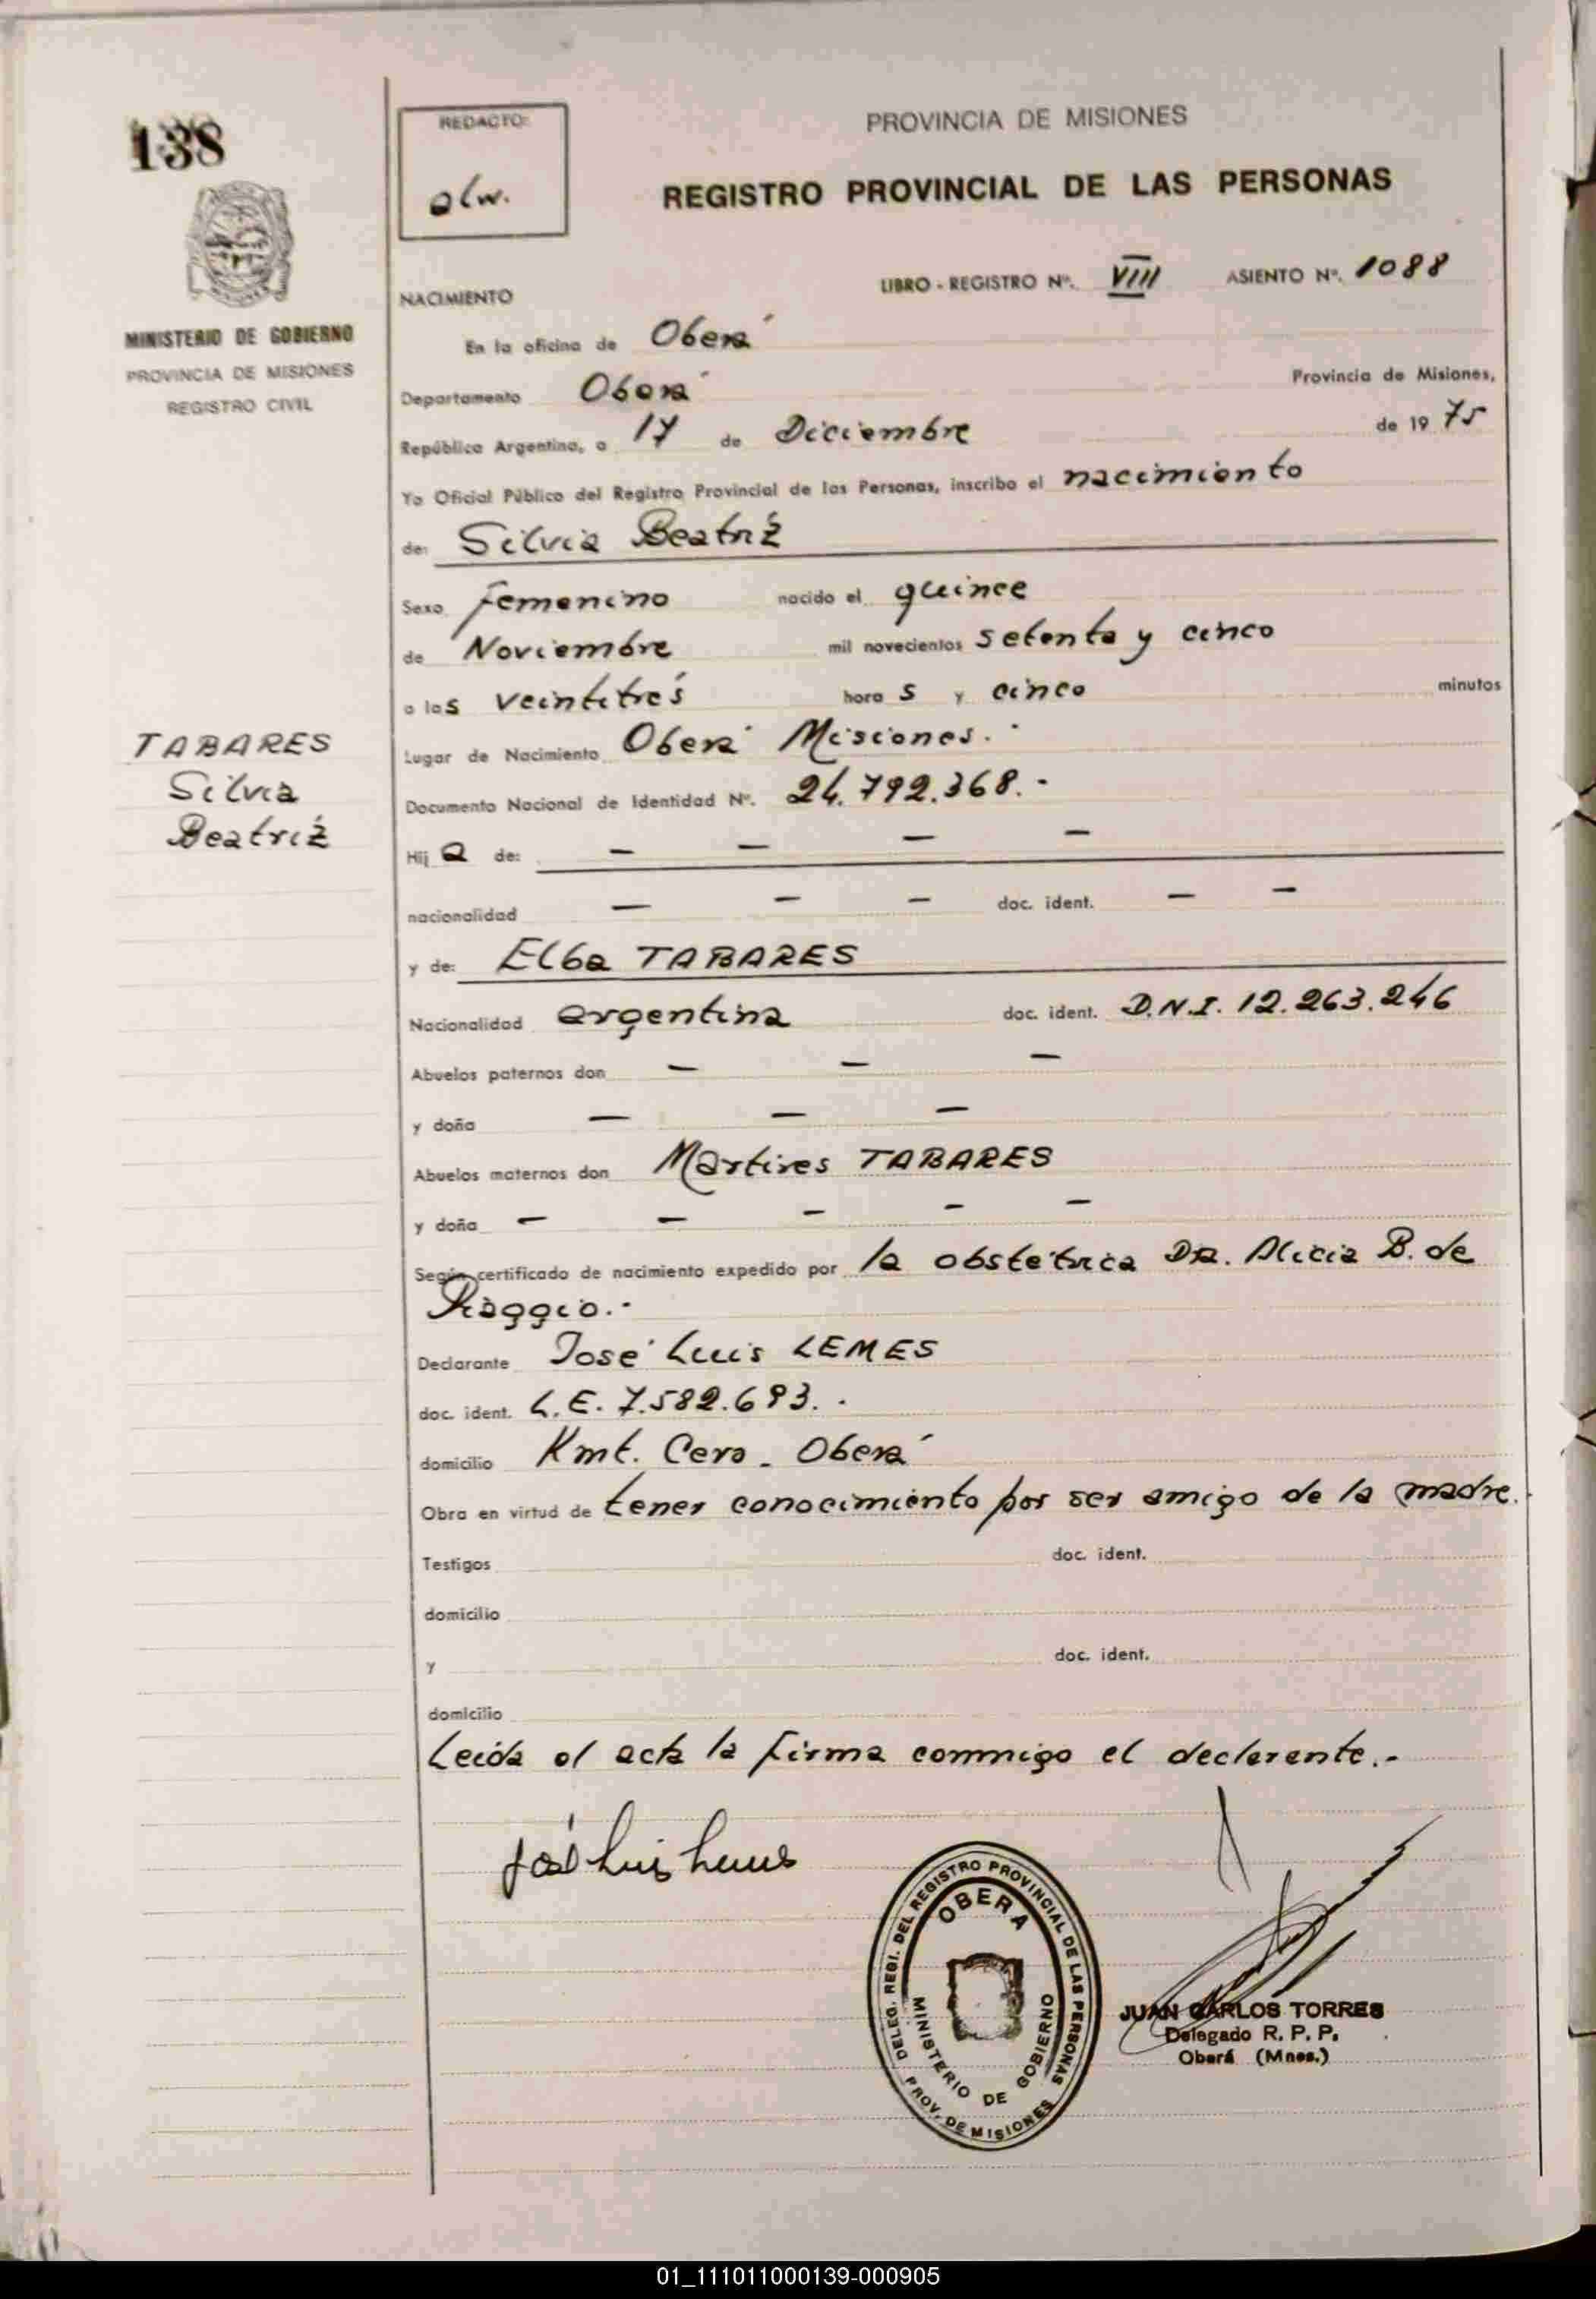 138
REDACTO:
olw.
PROVINCIA DE MISIONES
REGISTRO PROVINCIAL DE LAS PERSONAS
MINISTERIO DE GOBIERNO
PROVINCIA DE MISIONES
REGISTRO CIVIL
LIBRO - REGISTRO Nº. VIII ASIENTO Nº. 1088
NACIMIENTO
En la oficina de Oberá
Departamento Oberá Provincia de Misiones,
República Argentina, a 17 de Diciembre de 1975
Yo Oficial Público del Registro Provincial de las Personas, inscribo el nacimiento
de: Silvia Beatriz
Sexo femenino nacido el quince
de Noviembre mil novecientos setenta y cinco
a las veintitrés horas y cinco minutos
TABARES
Silvia
Beatriz
Lugar de Nacimiento Oberá Misiones.-
Documento Nacional de Identidad Nº. 24.792.368.-
Hija de: — — — —
nacionalidad — — — doc. ident. — —
y de: Elba TABARES
Nacionalidad argentina doc. ident. D.N.I. 12.263.246
Abuelos paternos don — — —
y doña — — —
Abuelos maternos don Martires TABARES
y doña — — — — —
Según certificado de nacimiento expedido por la obstétrica Da. Alicia B. de
Raggio.-
Declarante José Luis LEMES
doc. ident. L.E. 7.582.693.-
domicilio Kmt. Cero - Oberá
Obra en virtud de tener conocimiento por ser amigo de la madre.
Testigos doc. ident.
domicilio
y doc. ident.
domicilio
Leída el acta la firma conmigo el declarante.-
José Luis Lemes
DELEG. REGI. DEL REGISTRO PROVINCIAL DE LAS PERSONAS
OBERA
MINISTERIO DE GOBIERNO
PROV. DE MISIONES
JUAN CARLOS TORRES
Delegado R. P. P.
Oberá (Mnes.)
01_111011000139-000905